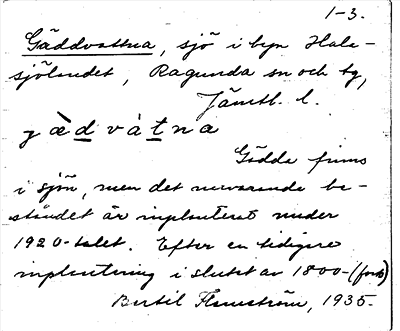 1-3.
Gäddvattna, sjö i byn Hale-
sjölandet, Ragunda sn och tg,
Jämtl. l.
g æ̀ d v à t n a
Gädda finns
i sjön, men det nuvarande be-
ståndet är inplanterat under
1920-talet. Efter en tidigare
inplantering i slutet av 1800-(forts)
Bertil Flemström, 1935.